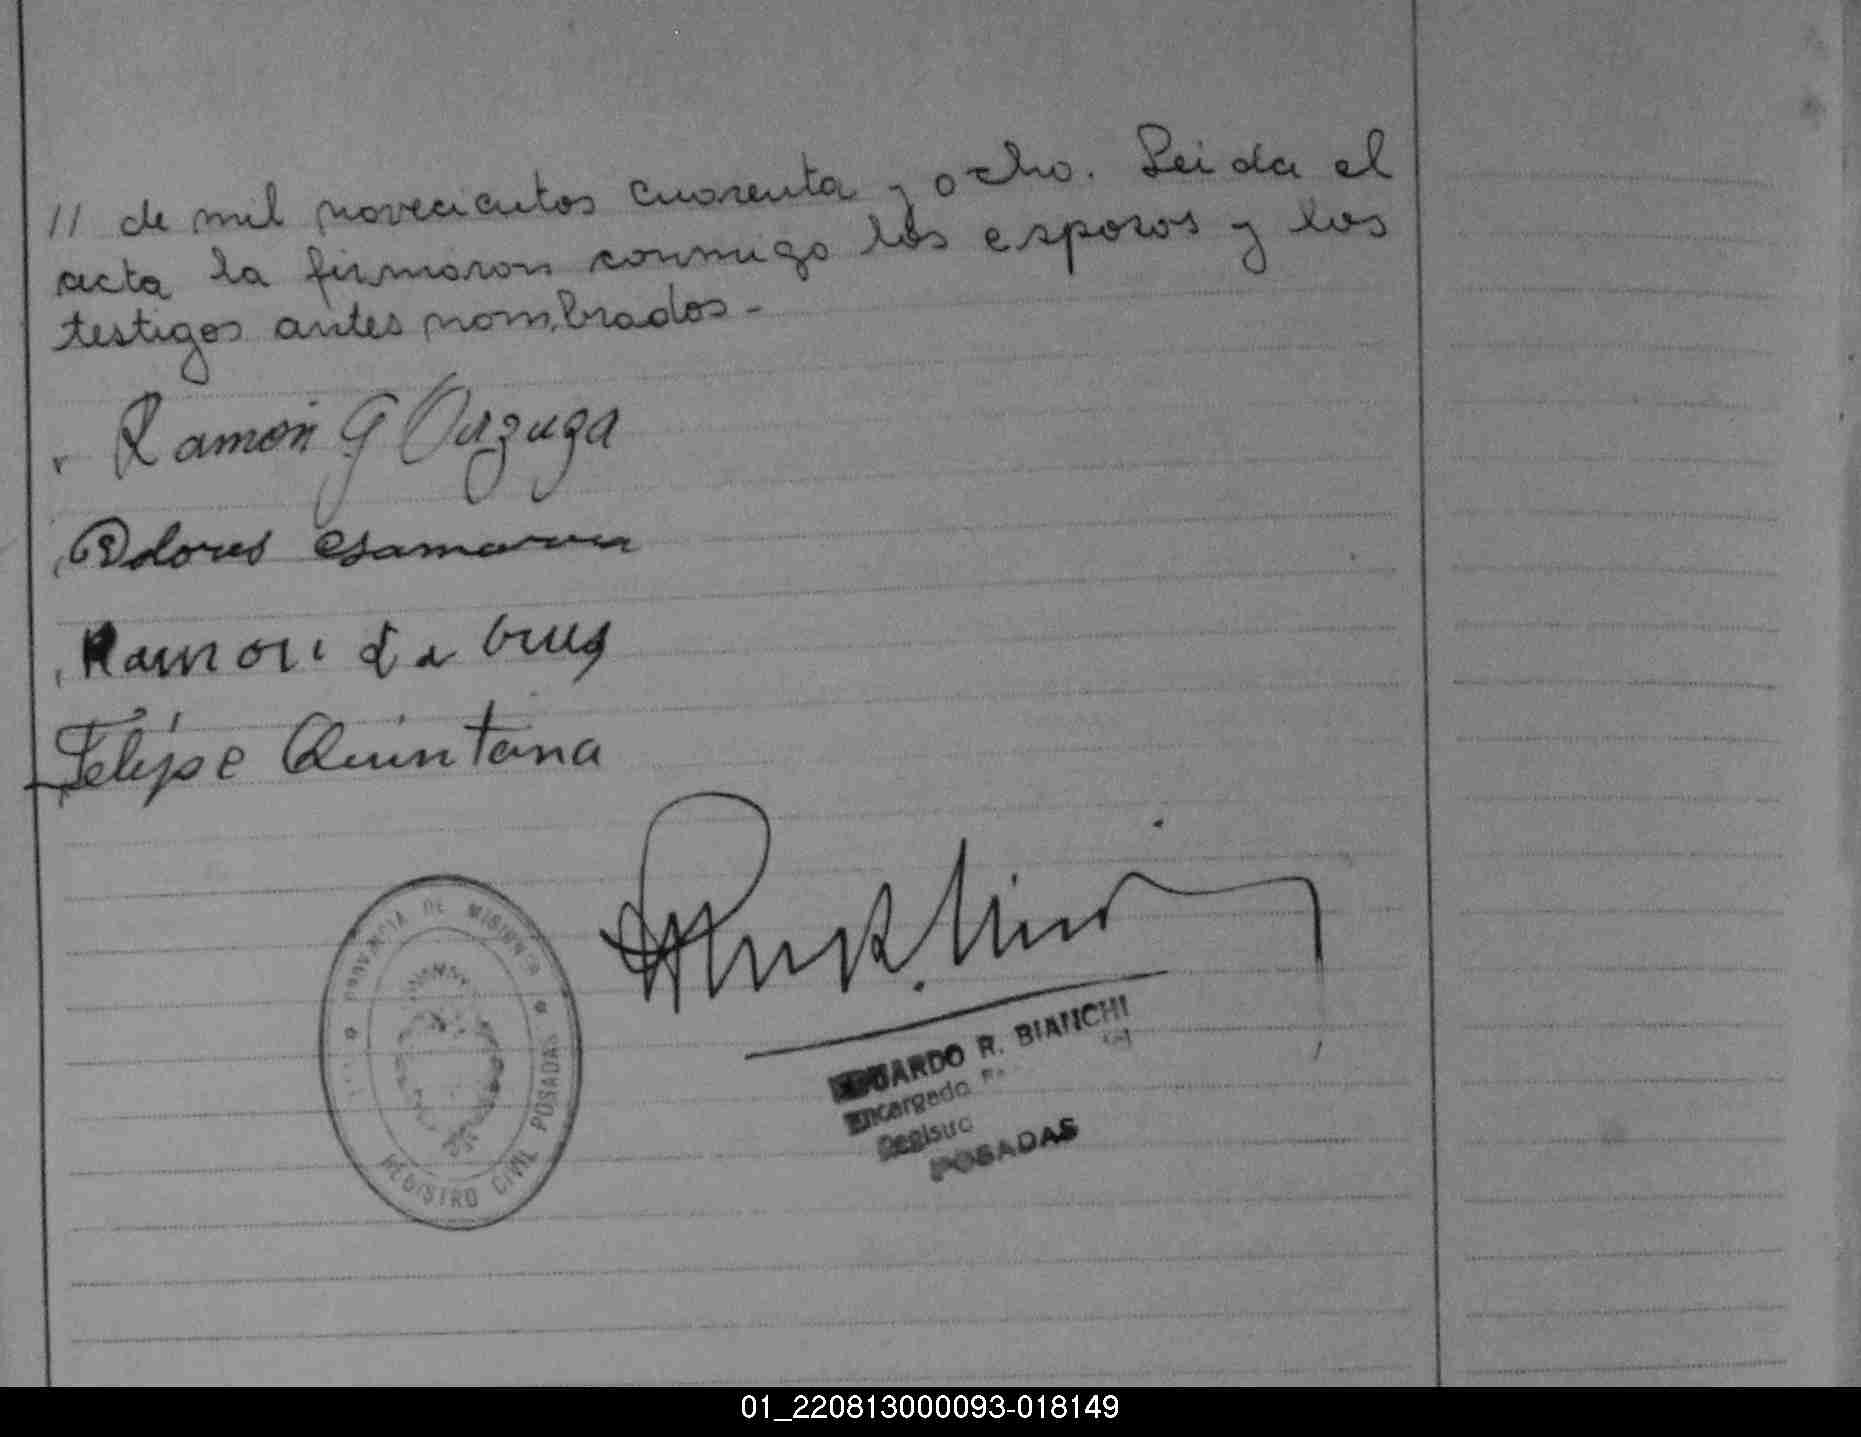 // de mil novecientos cuarenta y ocho. Leida el
acta la firmaron conmigo los esposos y los
testigos antes nombrados-
Ramón G Orzuza
Dolores
Ramon
Felipe Quintana
PROVINCIA DE MISIONES
REGISTRO CIVIL POSADAS
EDUARDO R. BIANCHI
Encargado
Registro
POSADAS
01_220813000093-018149